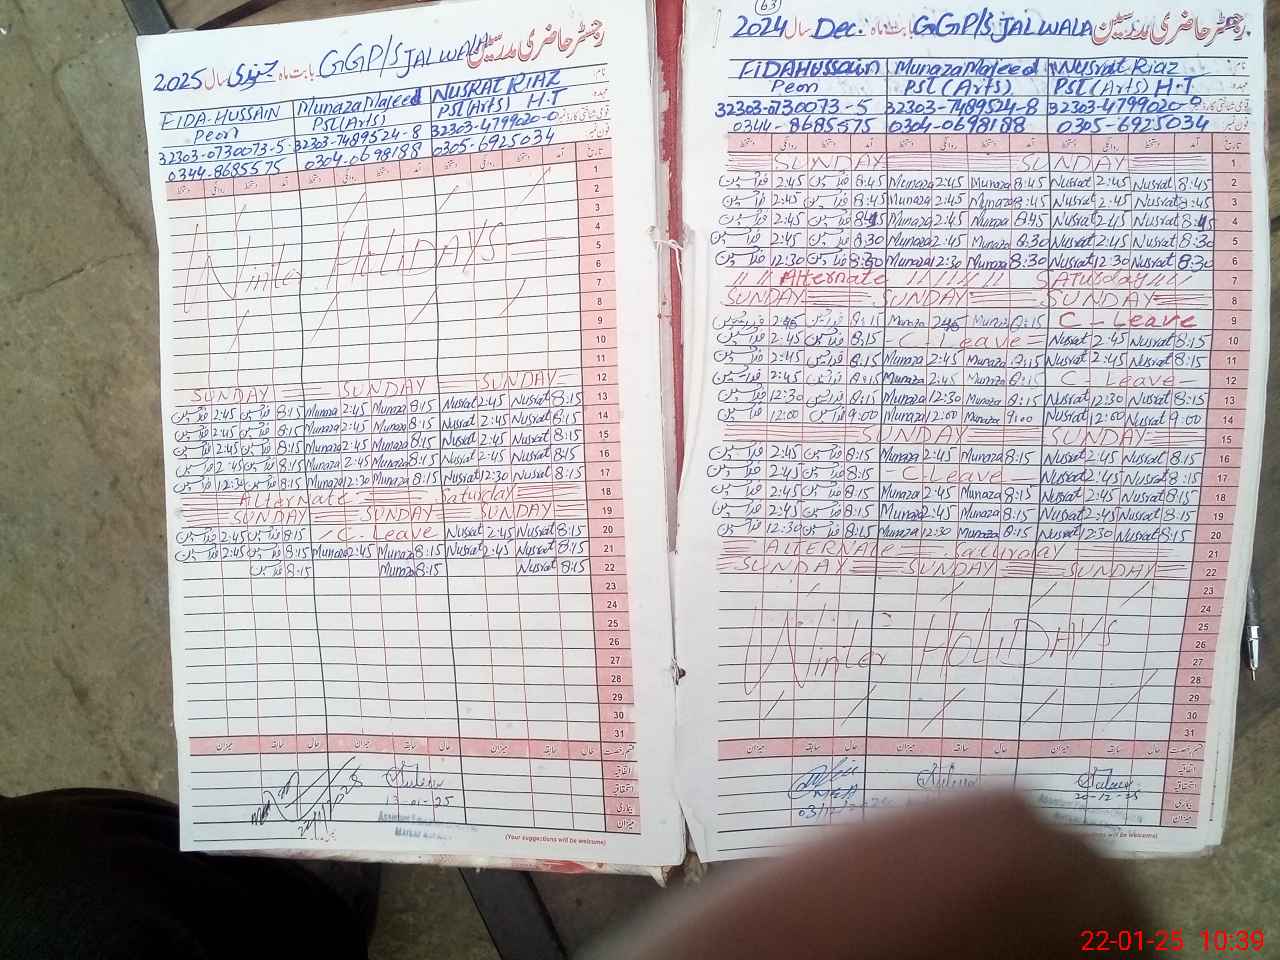 رجسٹر حاضری مدرسین GGP/S JALWALA بابت ماہ جنوری سال 2025
FIDA-HUSSAIN Munaza Majeed NUSRAT RIAZ
Peon PST (Arts) PST (Arts) H.T
32303-0730073-5 32303-7489524-8 32303-4799020-0
0344-8685575 0304-0698188 0305-6925034
تاریخ آمد دستخط روانگی دستخط آمد دستخط روانگی دستخط آمد دستخط روانگی دستخط
1
2
3
4
Winter HOLIDAYS
5
6
7
8
9
10
11
SUNDAY SUNDAY SUNDAY 12
2:45 8:15 Munaza 2:45 Munaza 8:15 Nusrat 2:45 Nusrat 8:15 13
2:45 8:15 Munaza 2:45 Munaza 8:15 Nusrat 2:45 Nusrat 8:15 14
2:45 8:15 Munaza 2:45 Munaza 8:15 Nusrat 2:45 Nusrat 8:15 15
2:45 8:15 Munaza 2:45 Munaza 8:15 Nusrat 2:45 Nusrat 8:15 16
12:30 8:15 Munaza 12:30 Munaza 8:15 Nusrat 12:30 Nusrat 8:15 17
Alternate Saturday 18
SUNDAY SUNDAY SUNDAY 19
2:45 8:15 C. Leave Nusrat 2:45 Nusrat 8:15 20
2:45 8:15 Munaza 2:45 Munaza 8:15 Nusrat 2:45 Nusrat 8:15 21
8:15 Munaza 8:15 Nusrat 8:15 22
23
24
25
26
27
28
29
30
31
قسم رخصت حال سابقہ میزان حال سابقہ میزان حال سابقہ میزان
اتفاقیہ
استحقاقیہ
بیماری
میزان
13-01-25
(Your suggestions will be welcome)
63
رجسٹر حاضری مدرسین GGP/S JALWALA بابت ماہ Dec. سال 2024
FIDAHUSSAIN Munaza Majeed Nusrat Riaz
Peon PST (Arts) PST (Arts) H.T
32303-0730073-5 32303-7489524-8 32303-4799020-0
0344-8685575 0304-0698188 0305-6925034
تاریخ آمد دستخط روانگی دستخط آمد دستخط روانگی دستخط آمد دستخط روانگی دستخط
SUNDAY SUNDAY 1
2:45 8:45 Munaza 2:45 Munaza 8:45 Nusrat 2:45 Nusrat 8:45 2
2:45 8:45 Munaza 2:45 Munaza 8:45 Nusrat 2:45 Nusrat 8:45 3
2:45 8:45 Munaza 2:45 Munaza 8:45 Nusrat 2:45 Nusrat 8:45 4
2:45 8:30 Munaza 2:45 Munaza 8:30 Nusrat 2:45 Nusrat 8:30 5
12:30 8:30 Munaza 12:30 Munaza 8:30 Nusrat 12:30 Nusrat 8:30 6
Alternate Saturday 7
SUNDAY SUNDAY SUNDAY 8
2:45 8:15 Munaza 2:45 Munaza 8:15 C-Leave 9
2:45 8:15 C-Leave Nusrat 2:45 Nusrat 8:15 10
2:45 8:15 Munaza 2:45 Munaza 8:15 Nusrat 2:45 Nusrat 8:15 11
2:45 8:15 Munaza 2:45 Munaza 8:15 C-Leave 12
12:30 8:15 Munaza 12:30 Munaza 8:15 Nusrat 12:30 Nusrat 8:15 13
12:00 9:00 Munaza 12:00 Munaza 9:00 Nusrat 12:00 Nusrat 9:00 14
SUNDAY SUNDAY 15
2:45 8:15 Munaza 2:45 Munaza 8:15 Nusrat 2:45 Nusrat 8:15 16
2:45 8:15 C-Leave Nusrat 2:45 Nusrat 8:15 17
2:45 8:15 Munaza 2:45 Munaza 8:15 Nusrat 2:45 Nusrat 8:15 18
2:45 8:15 Munaza 2:45 Munaza 8:15 Nusrat 2:45 Nusrat 8:15 19
12:30 8:15 Munaza 12:30 Munaza 8:15 Nusrat 12:30 Nusrat 8:15 20
ALTERNATE Saturday 21
SUNDAY SUNDAY SUNDAY 22
23
24
25
Winter HOLIDAYS
26
27
28
29
30
31
قسم رخصت حال سابقہ میزان حال سابقہ میزان
اتفاقیہ
استحقاقیہ
بیماری
میزان
(Your suggestions will be welcome)
22-01-25 10:39